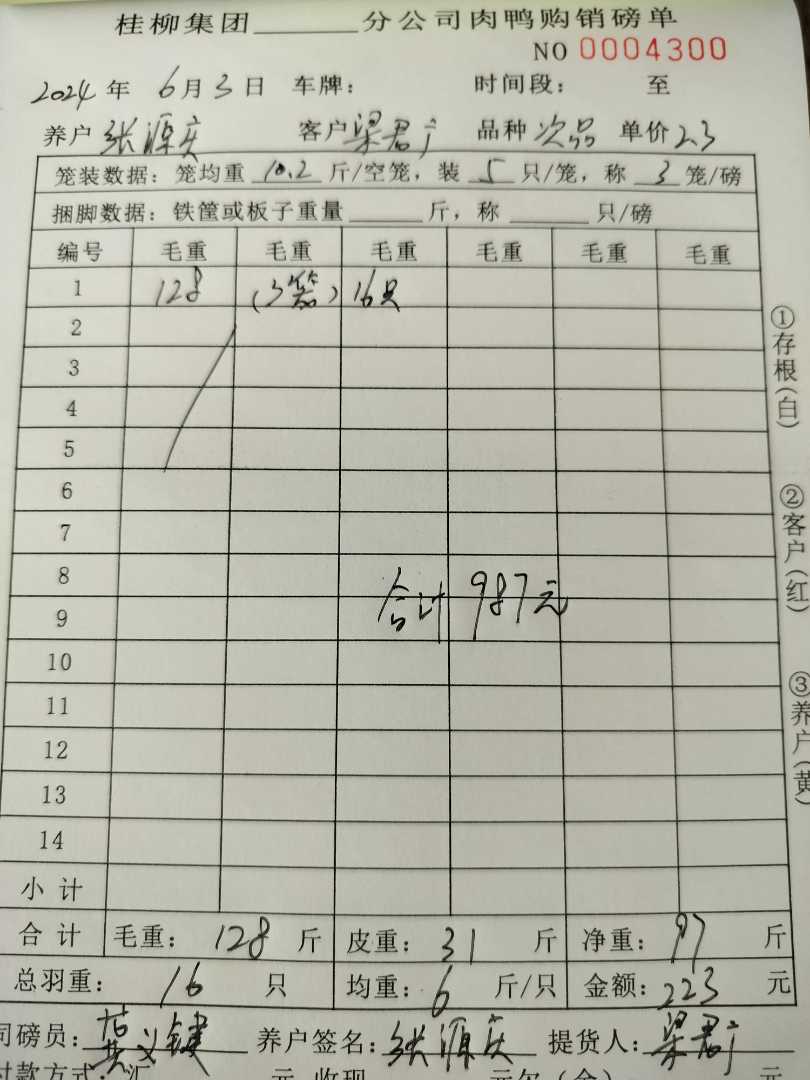 桂柳集团______分公司肉鸭购销磅单
NO 0004300
2024年 6月3日 车牌： 时间段： 至
养户 张源庆 客户 梁君广 品种 次品 单价 2.3
笼装数据：笼均重 10.2 斤/空笼，装 5 只/笼，称 3 笼/磅
捆脚数据：铁筐或板子重量______斤，称______只/磅
编号 毛重 毛重 毛重 毛重 毛重 毛重
1 128 (3笼) 16只
2
3
4
5
6
7
8
合计 987元
9
10
11
12
13
14
小计
合计 毛重：128斤 皮重：31斤 净重：97斤
总羽重：16只 均重：6斤/只 金额：223元
司磅员： 养户签名：张源庆 提货人：梁君广
付款方式：汇 元 收现 元欠（余） 元
①存根（白）
②客户（红）
③养户（黄）